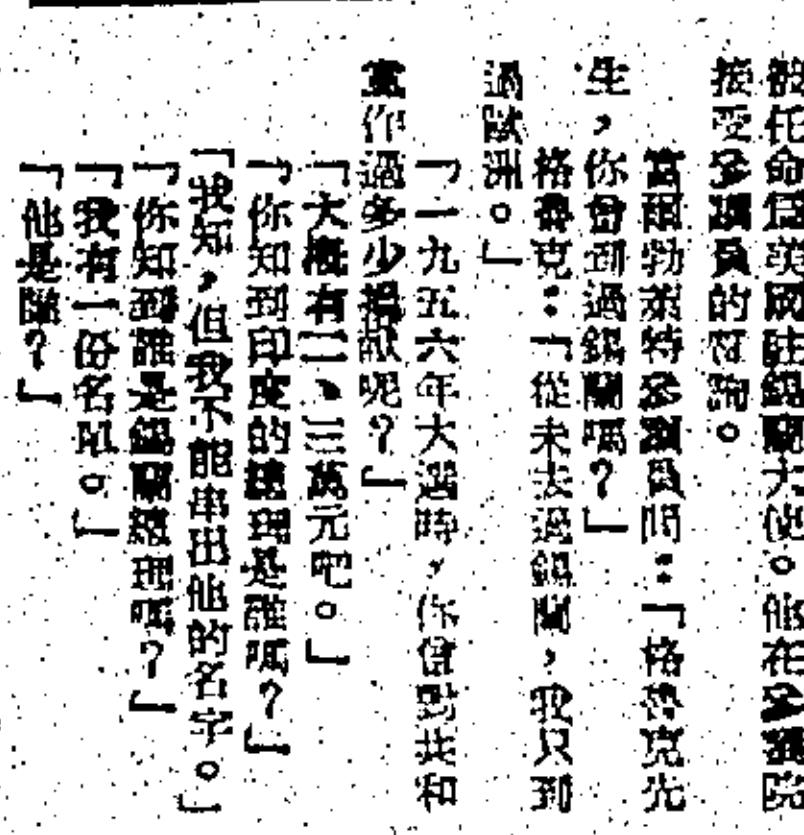 被任命爲英國駐錫蘭大使。他在參議院
接受參議員的質詢。
富爾勃萊特參議員問：「格魯克先
生，你曾到過錫蘭嗎？」
格魯克：「從未去過錫蘭，我只到
過歐洲。」
「一九五六年大選時，你曾對共和
黨作過多少捐獻呢？」
「大概有二、三萬元吧。」
「你知到印度的總理是誰嗎？」
「我知，但我不能串出他的名字。」
「你知到誰是錫蘭總理嗎？」
「我有一份名單。」
「他是誰？」